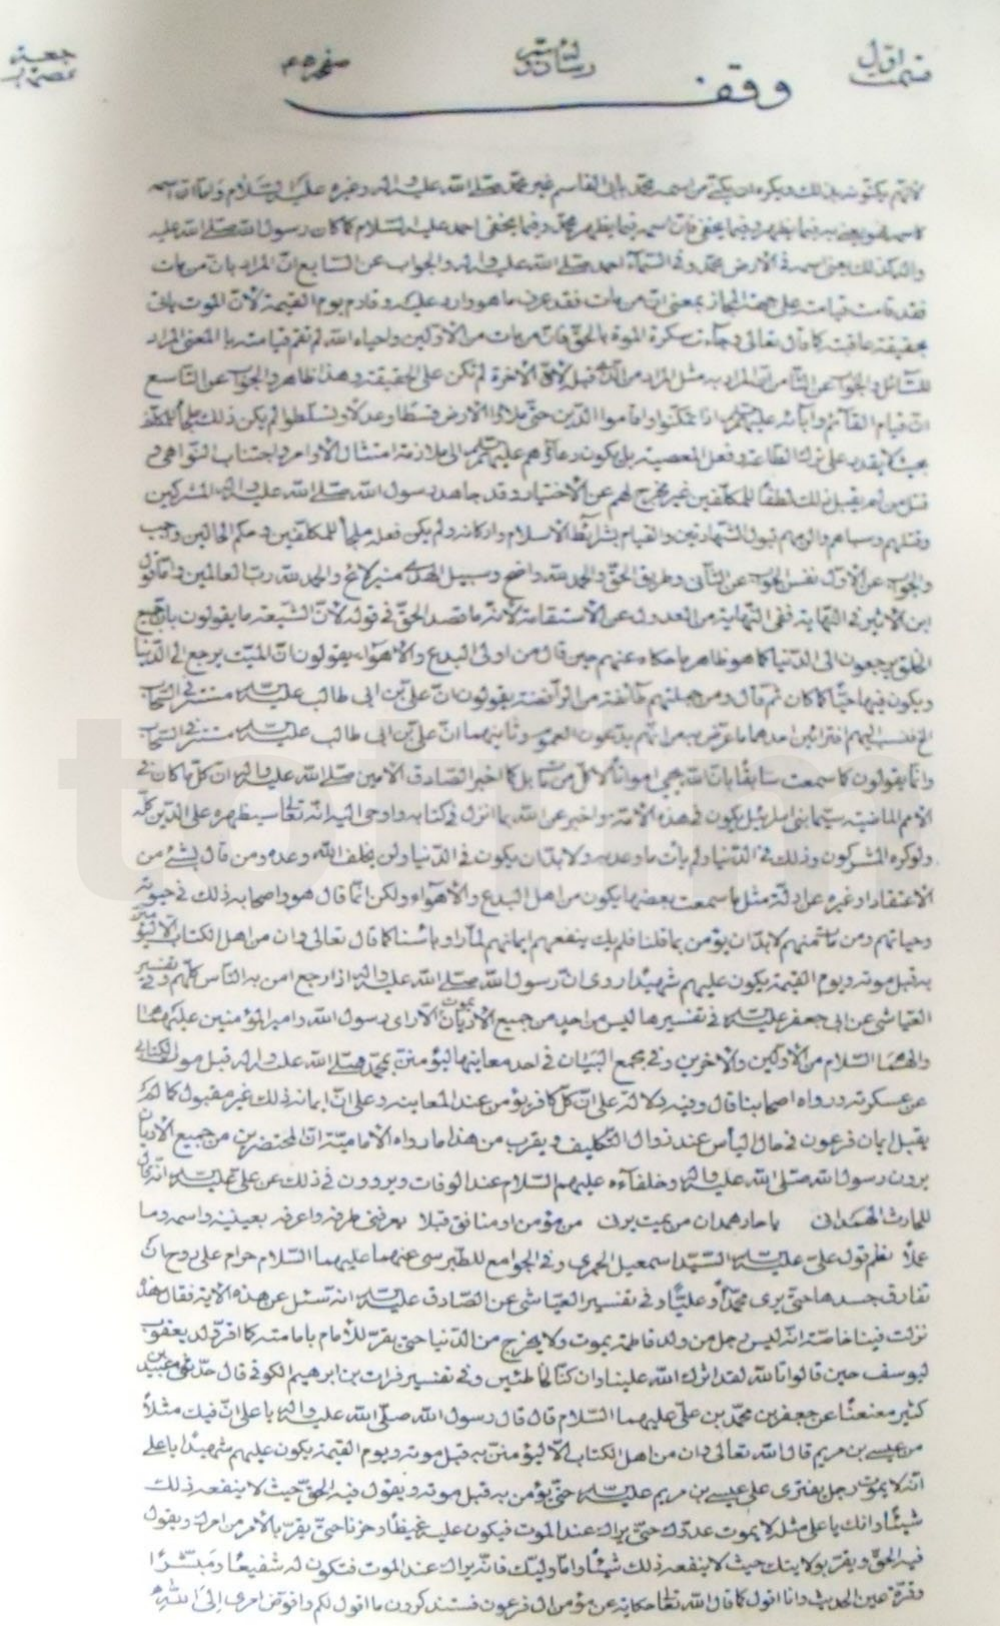 قسمت اول
صفحه ۴۵
وقف
لانهم يكنونه بذلك ويكره ان يكنى من اسمه محمد بابى القاسم غير محمد صلى الله عليه واله وغيره عليه السلام واما ان اسمه
كاسمه فهو فيما يظهر وفيما يخفى فان اسمه فيما يظهر محمد وفيما يخفى احمد عليه السلام كما كان رسول الله صلى الله عليه
واله كذلك يعنى اسمه فى الارض محمد وفى السماء احمد صلى الله عليه واله والجواب عن السابع ان المراد بان من مات
فقد قامت قيامته على جهة المجاز بمعنى ان من مات فقد عرف ما هو وارد عليه وقادم يوم القيمة لان الموت ياتى
بحقيقة عاقبته كما قال تعالى وجاءت سكرة الموت بالحق فان من مات من الاولين واحياه الله لم تقم قيامته بالمعنى المراد
للسائل والجواب عن الثامن ان المراد به مثل المراد من الذى قبل لان الاخرة لم تكن على الحقيقة وهذا ظاهر والجواب عن التاسع
ان قيام القائم وابائه عليهم السلام اذا تمكنوا واقاموا الدين حتى ملاوا الارض قسطا وعدلا وتسلطوا لم يكن ذلك ملجأ للمكلف
بحيث لا يقدر على ترك الطاعة وفعل المعصية بل يكون دعاؤهم عليهم السلام الى ملازمة امتثال الاوامر واجتناب النواهى و
قتل من لم يقبل ذلك لطفا للمكلفين غير مخرج لهم عن الاختيار وقد جاهد رسول الله صلى الله عليه واله المشركين
وقتلهم وسباهم والزمهم قبول الشهادتين والقيام بشرايط الاسلام واركانه ولم يكن فعله ملجأ للمكلفين وحكم الحالين واحد
والجواب عن الاول نفس الجواب عن الثانى وطريق الحق والحمد لله واضح وسبيل الهدى منير لائح والحمد لله رب العالمين واما قول
ابن الاثير فى النهاية ففى النهاية من العدول عن الاستقامة لانه ما قصد الحق فى قوله لان الشيعة ما يقولون بان جميع
الخلق يرجعون الى الدنيا كما هو ظاهر ما حكاه عنهم حين قال من اولى البدع والاهواء يقولون ان الميت يرجع الى الدنيا
ويكون فيها حيا كما كان ثم قال ومن جملتهم طائفة من الرافضة يقولون ان على بن ابى طالب عليه السلام مستتر فى السحاب
الخ فنسب اليهم افترائين احدهما ما عرض به من انهم يدعون العموم وثانيهما ان على بن ابى طالب عليه السلام مستتر فى السحاب
وانما يقولون كما سمعت سابقا بان الله يحيى امواتا لا كل من مات بل كما اخبر الصادق الامين صلى الله عليه واله ان كل ما كان فى
الامم الماضية سيما بنى اسرائيل يكون فى هذه الامة واخبر عن الله بما انزل فى كتابه واوحى اليه انه تعالى سيظهره على الدين كله
ولو كره المشركون وذلك فى الدنيا ولم يات ما وعد به ولا بد ان يكون فى الدنيا ولن يخلف الله وعده ومن قال بشئ من
الاعتقاد وغيره عن ادلة مثل ما سمعت بعضها يكون من اهل البدع والاهواء ولكن انما قال هو واصحابه ذلك فى حيوته
وحياتهم ومن مات منهم لا بد ان يؤمن بما قلنا فلم يك ينفعهم ايمانهم لما راوا بأسنا كما قال تعالى وان من اهل الكتاب الا ليؤمنن
به قبل موته ويوم القيمة يكون عليهم شهيدا روى ان رسول الله صلى الله عليه واله اذا رجع امن به الناس كلهم وفى تفسير
العياشى عن ابى جعفر عليه السلام فى تفسيرها ليس من احد من جميع الاديان يموت الا راى رسول الله وامير المؤمنين عليهما
والهما السلام من الاولين والاخرين وفى مجمع البيان فى احد معانيها ليؤمنن بمحمد صلى الله عليه واله قبل موت الكتابى
عن عكرمة ورواه اصحابنا قال وفيه دلالة على ان كل كافر يؤمن عند المعاينة وعلى ان ايمانه ذلك غير مقبول كما لم
يقبل ايمان فرعون فى حال اليأس عند زوال التكليف ويقرب من هذا ما رواه الامامية ان المحتضرين من جميع الاديان
يرون رسول الله صلى الله عليه واله وخلفاءه عليهم السلام عند الوفات ويروون فى ذلك عن على عليه السلام انه قال
للحارث الهمدانى يا حار همدان من يمت يرنى من مؤمن او منافق قبلا يعرفنى طرفه واعرفه بعينه واسمه وما
عملا نظم قول على عليه السلام السيد اسمعيل الحميرى وفى الجوامع للطبرسى عنهما عليهما السلام حرام على روح ان
تفارق جسدها حتى يرى محمدا وعليا وفى تفسير العياشى عن الصادق عليه السلام انه سئل عن هذه الاية فقال هذه
نزلت فينا خاصة انه ليس رجل من ولد فاطمة يموت ولا يخرج من الدنيا حتى يقر للامام بامامته كما اقر ولد يعقوب
ليوسف حين قالوا تالله لقد اثرك الله علينا وان كنا لخاطئين وفى تفسير فرات بن ابرهيم الكوفى قال حدثنى عبيد بن
كثير معنعنا عن جعفر بن محمد بن على عليهما السلام قال قال رسول الله صلى الله عليه واله يا على ان فيك مثلا
من عيسى بن مريم قال الله تعالى وان من اهل الكتاب الا ليؤمنن به قبل موته ويوم القيمة يكون عليهم شهيدا يا على
انه لا يموت رجل يفترى على عيسى بن مريم عليه السلام حتى يؤمن به قبل موته ويقول فيه الحق حيث لا ينفعه ذلك
شيئا وانك يا على مثله لا يموت عدوك حتى يراك عند الموت فيكون عليه غيظا وحزنا حتى يقر بالامر من امرك ويقول
فيه الحق ويقر بولايتك حيث لا ينفعه ذلك شيئا واما وليك فانه يراك عند الموت فتكون له شفيعا ومبشرا
وقرة عين الحديث وانا اقول كما قال الله تعالى حكاية عن مؤمن ال فرعون فستذكرون ما اقول لكم وافوض امرى الى الله